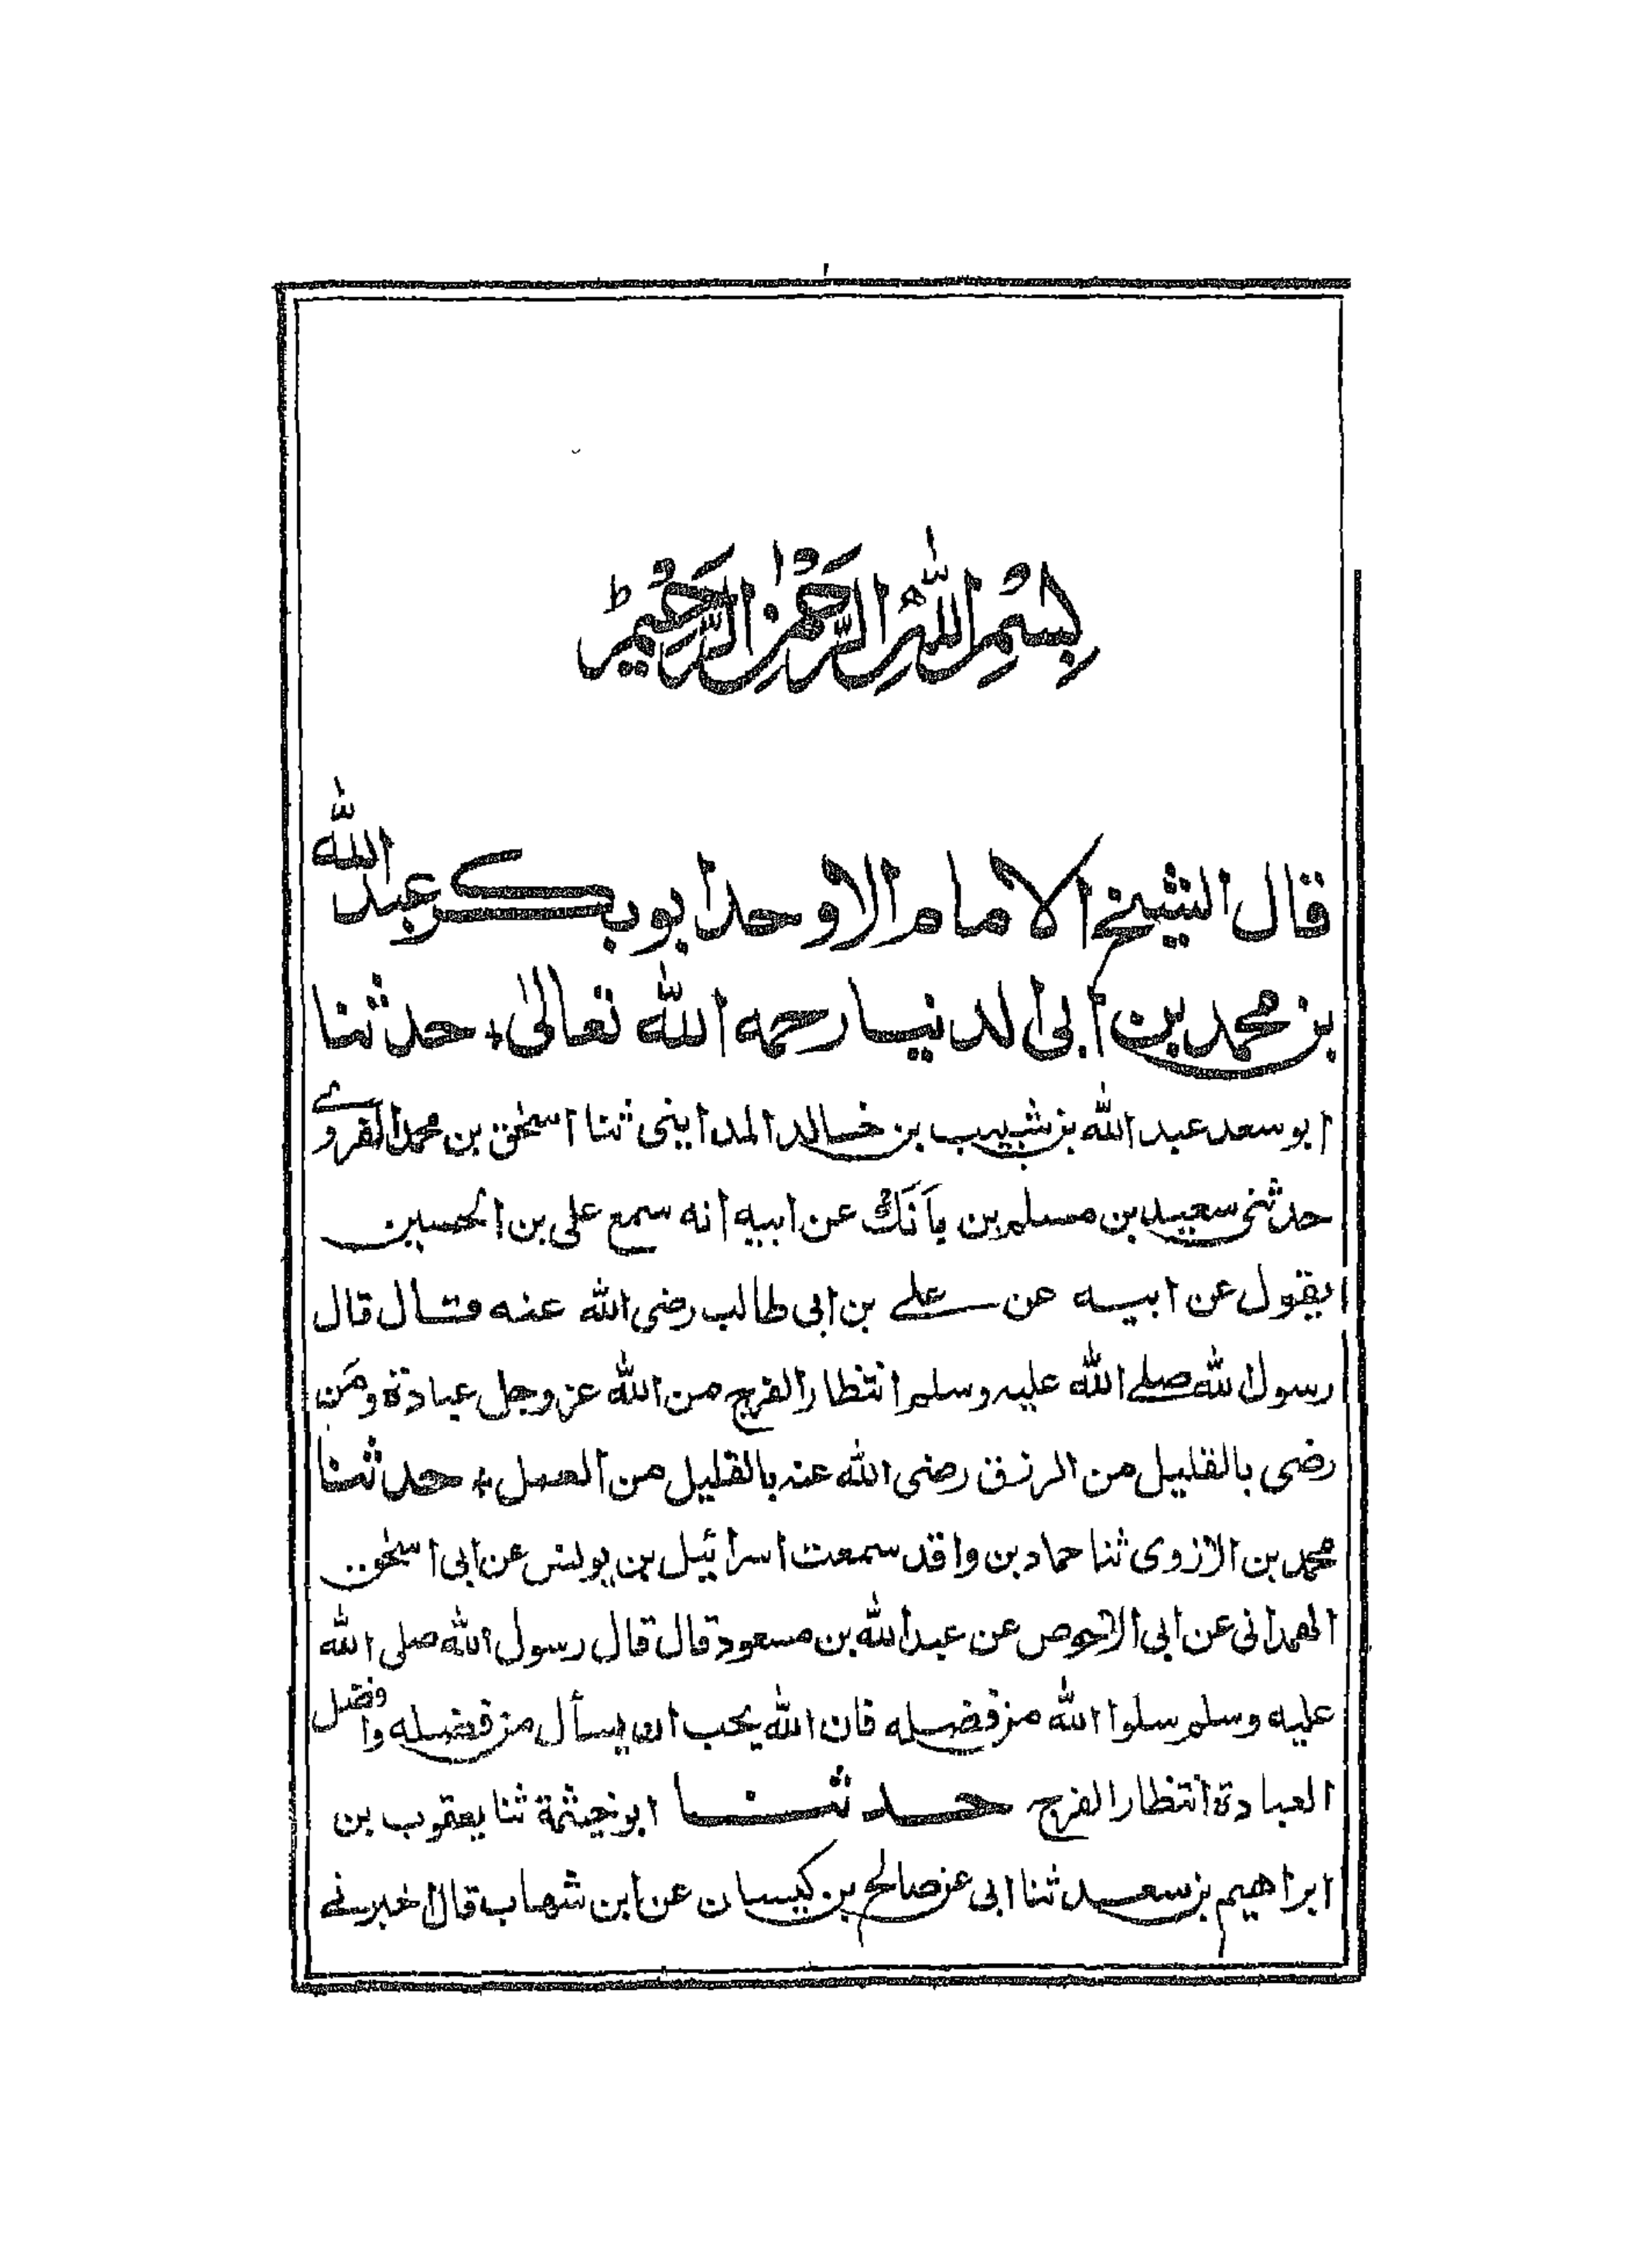 بِسْمِ اللهِ الرَّحْمٰنِ الرَّحِيْمِ ط
قال الشيخ الامام الاوحد ابو بكر عبد الله
بن محمد بن ابى الدنيا رحمه الله تعالىٰ + حدثنا
ابو سعد عبد الله بن شبيب بن خالد المداينى ثنا اسحٰق بن محمد الفروے
حدثنى سعيد بن مسلم بن بانَك عن ابيه انه سمع على بن الحسين
يقول عن ابيه عن علے بن ابى طالب رضى الله عنه قال قال
رسول الله صلے الله عليه وسلم انتظار الفرج من الله عز وجل عبادة ومَن
رضى بالقليل من الرزق رضى الله عنه بالقليل من العمل + حدثنا
محمد بن الازوى ثنا حماد بن واقد سمعت اسرائيل بن يونس عن ابى اسحٰق
الهمدانى عن ابى الاحوص عن عبد الله بن مسعود قال قال رسول الله صلى الله
عليه وسلم سلوا الله من فضله فان الله يحب ان يسأل من فضله وافضل
العبادة انتظار الفرج حدثنا ابو خيثمة ثنا يعقوب بن
ابراهيم بن سعد ثنا ابى عن صالح بن كيسان عن ابن شهاب قال اخبرنے